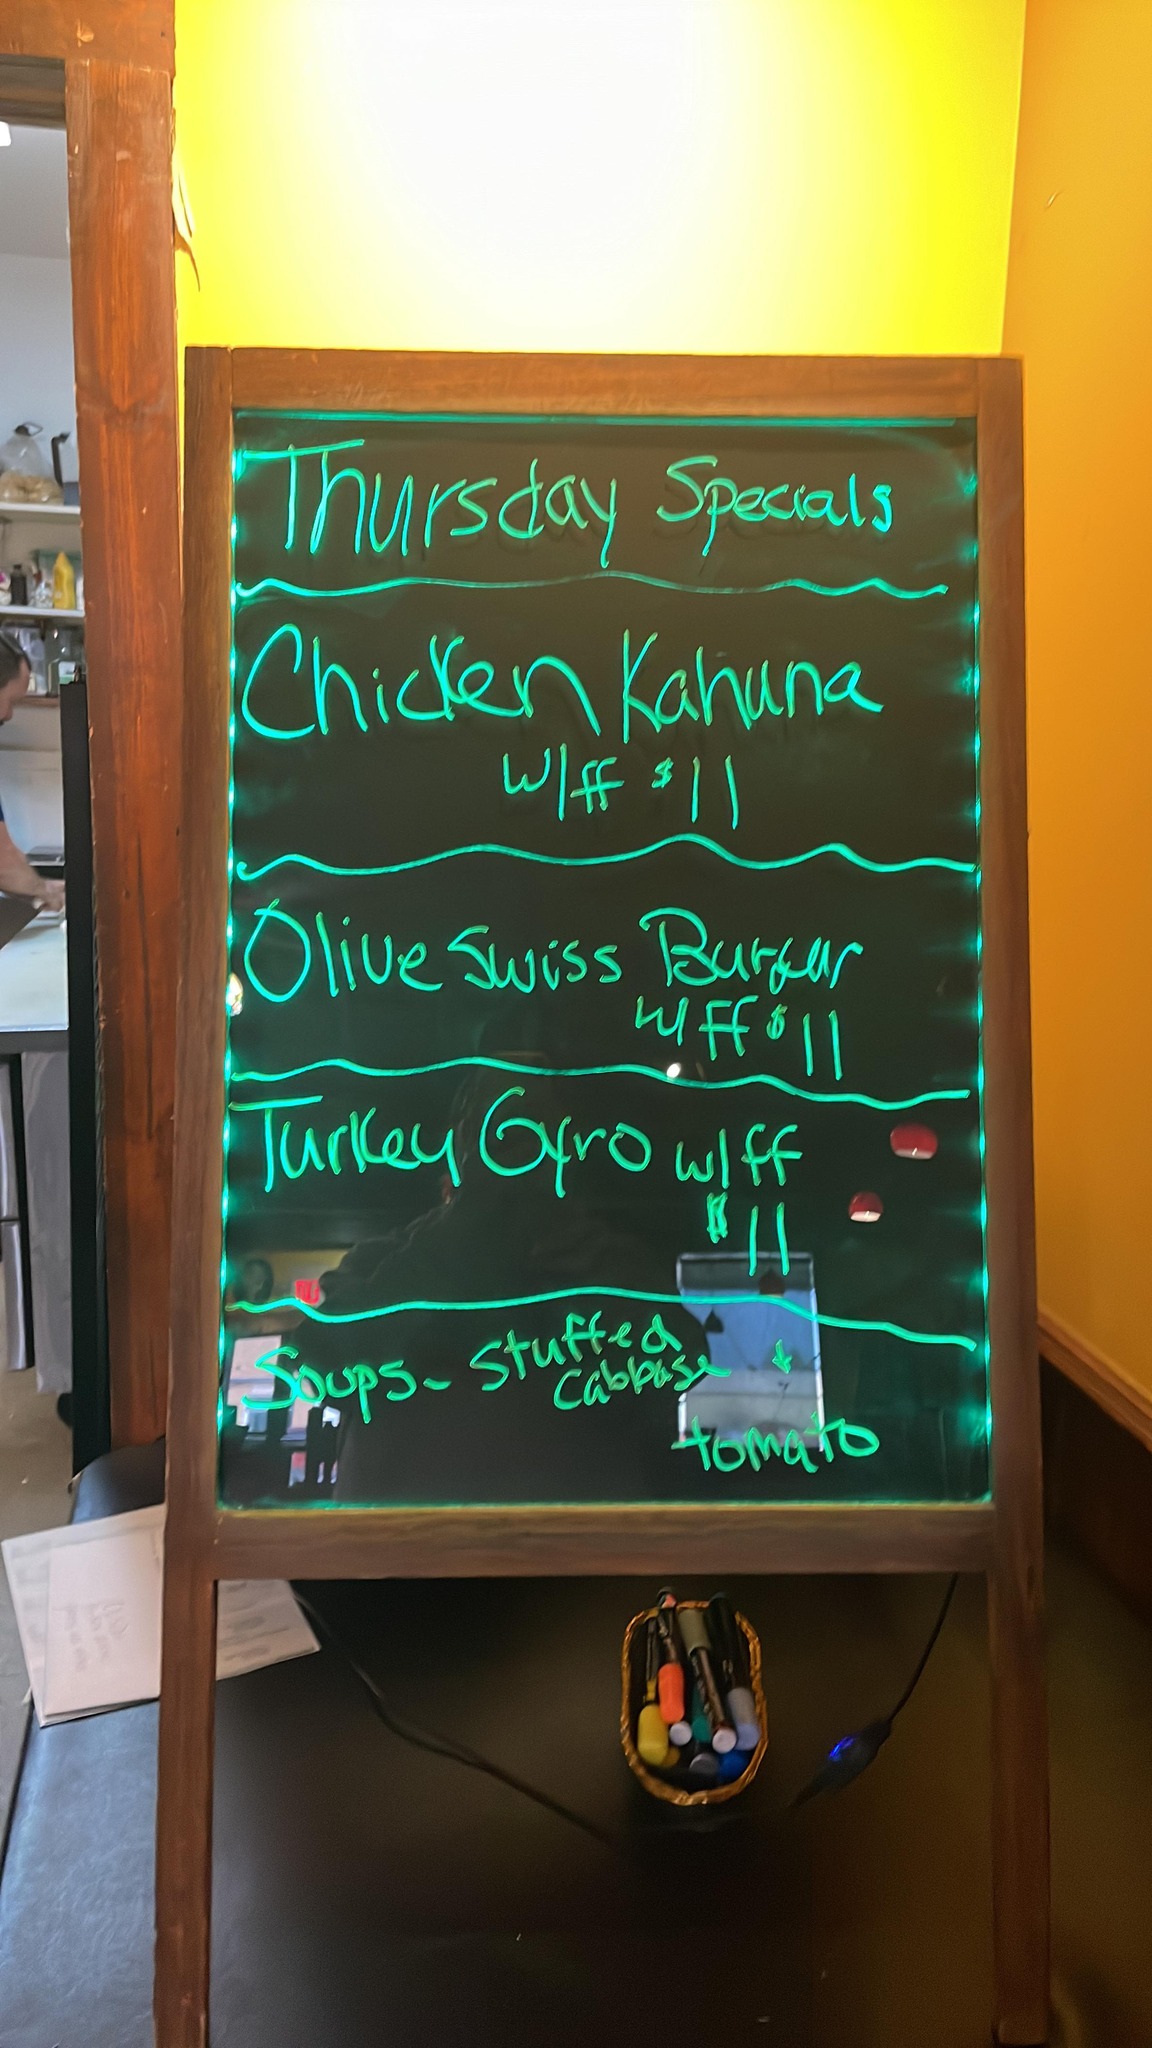 Thursday Specials
Chicken Kahuna
w/ff $11
Olive Swiss Burger
w/ff $11
Turkey Gyro w/ff
$11
Soups - Stuffed
Cabbage +
tomato